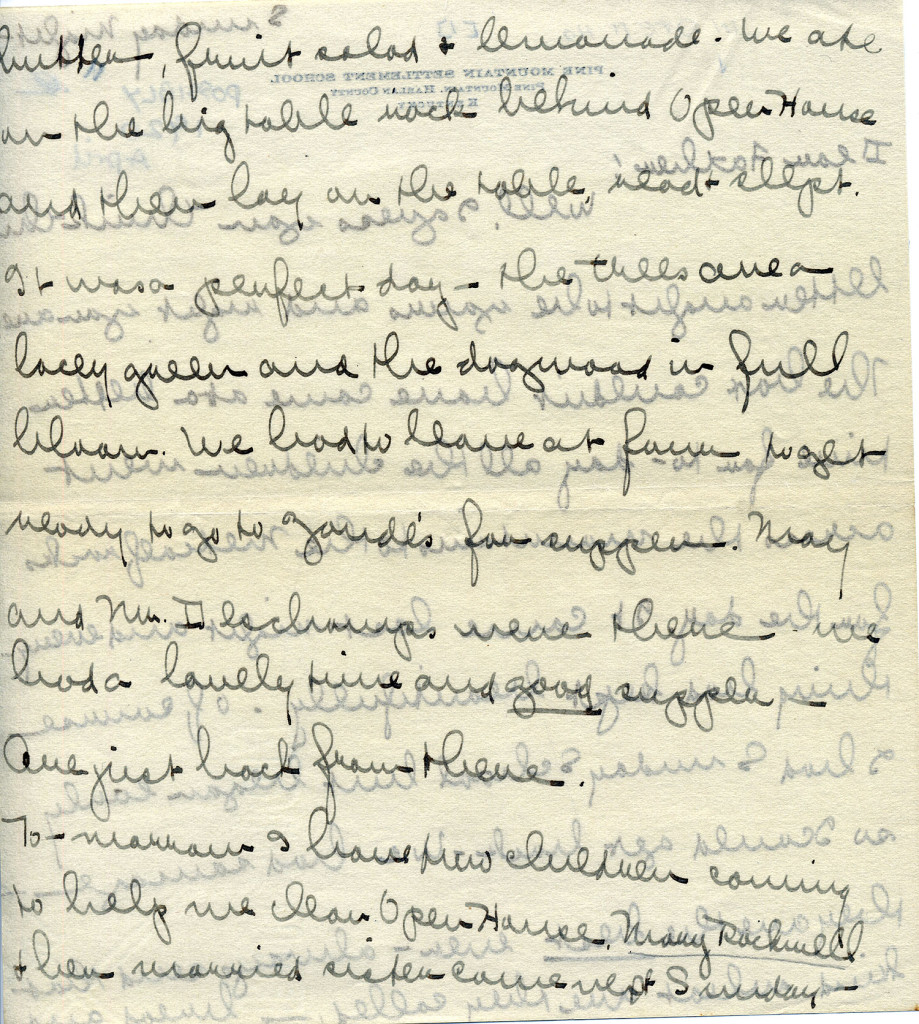 butter, fruit salad & lemonade. We ate
on the big table rock behind Open House
and then lay on the table, read & slept.
It was a perfect day – the trees are a
lacey green and the dogwood in full
bloom. We had to leave at four to get
ready to go to Zande's for supper. May
and Mr. Deschamps were there – we
had a lovely time and good supper –
Are just back from there.
To-morrow I have two children coming
to help me clean Open House. Mary Rockwell
& her married sister come next Sunday –